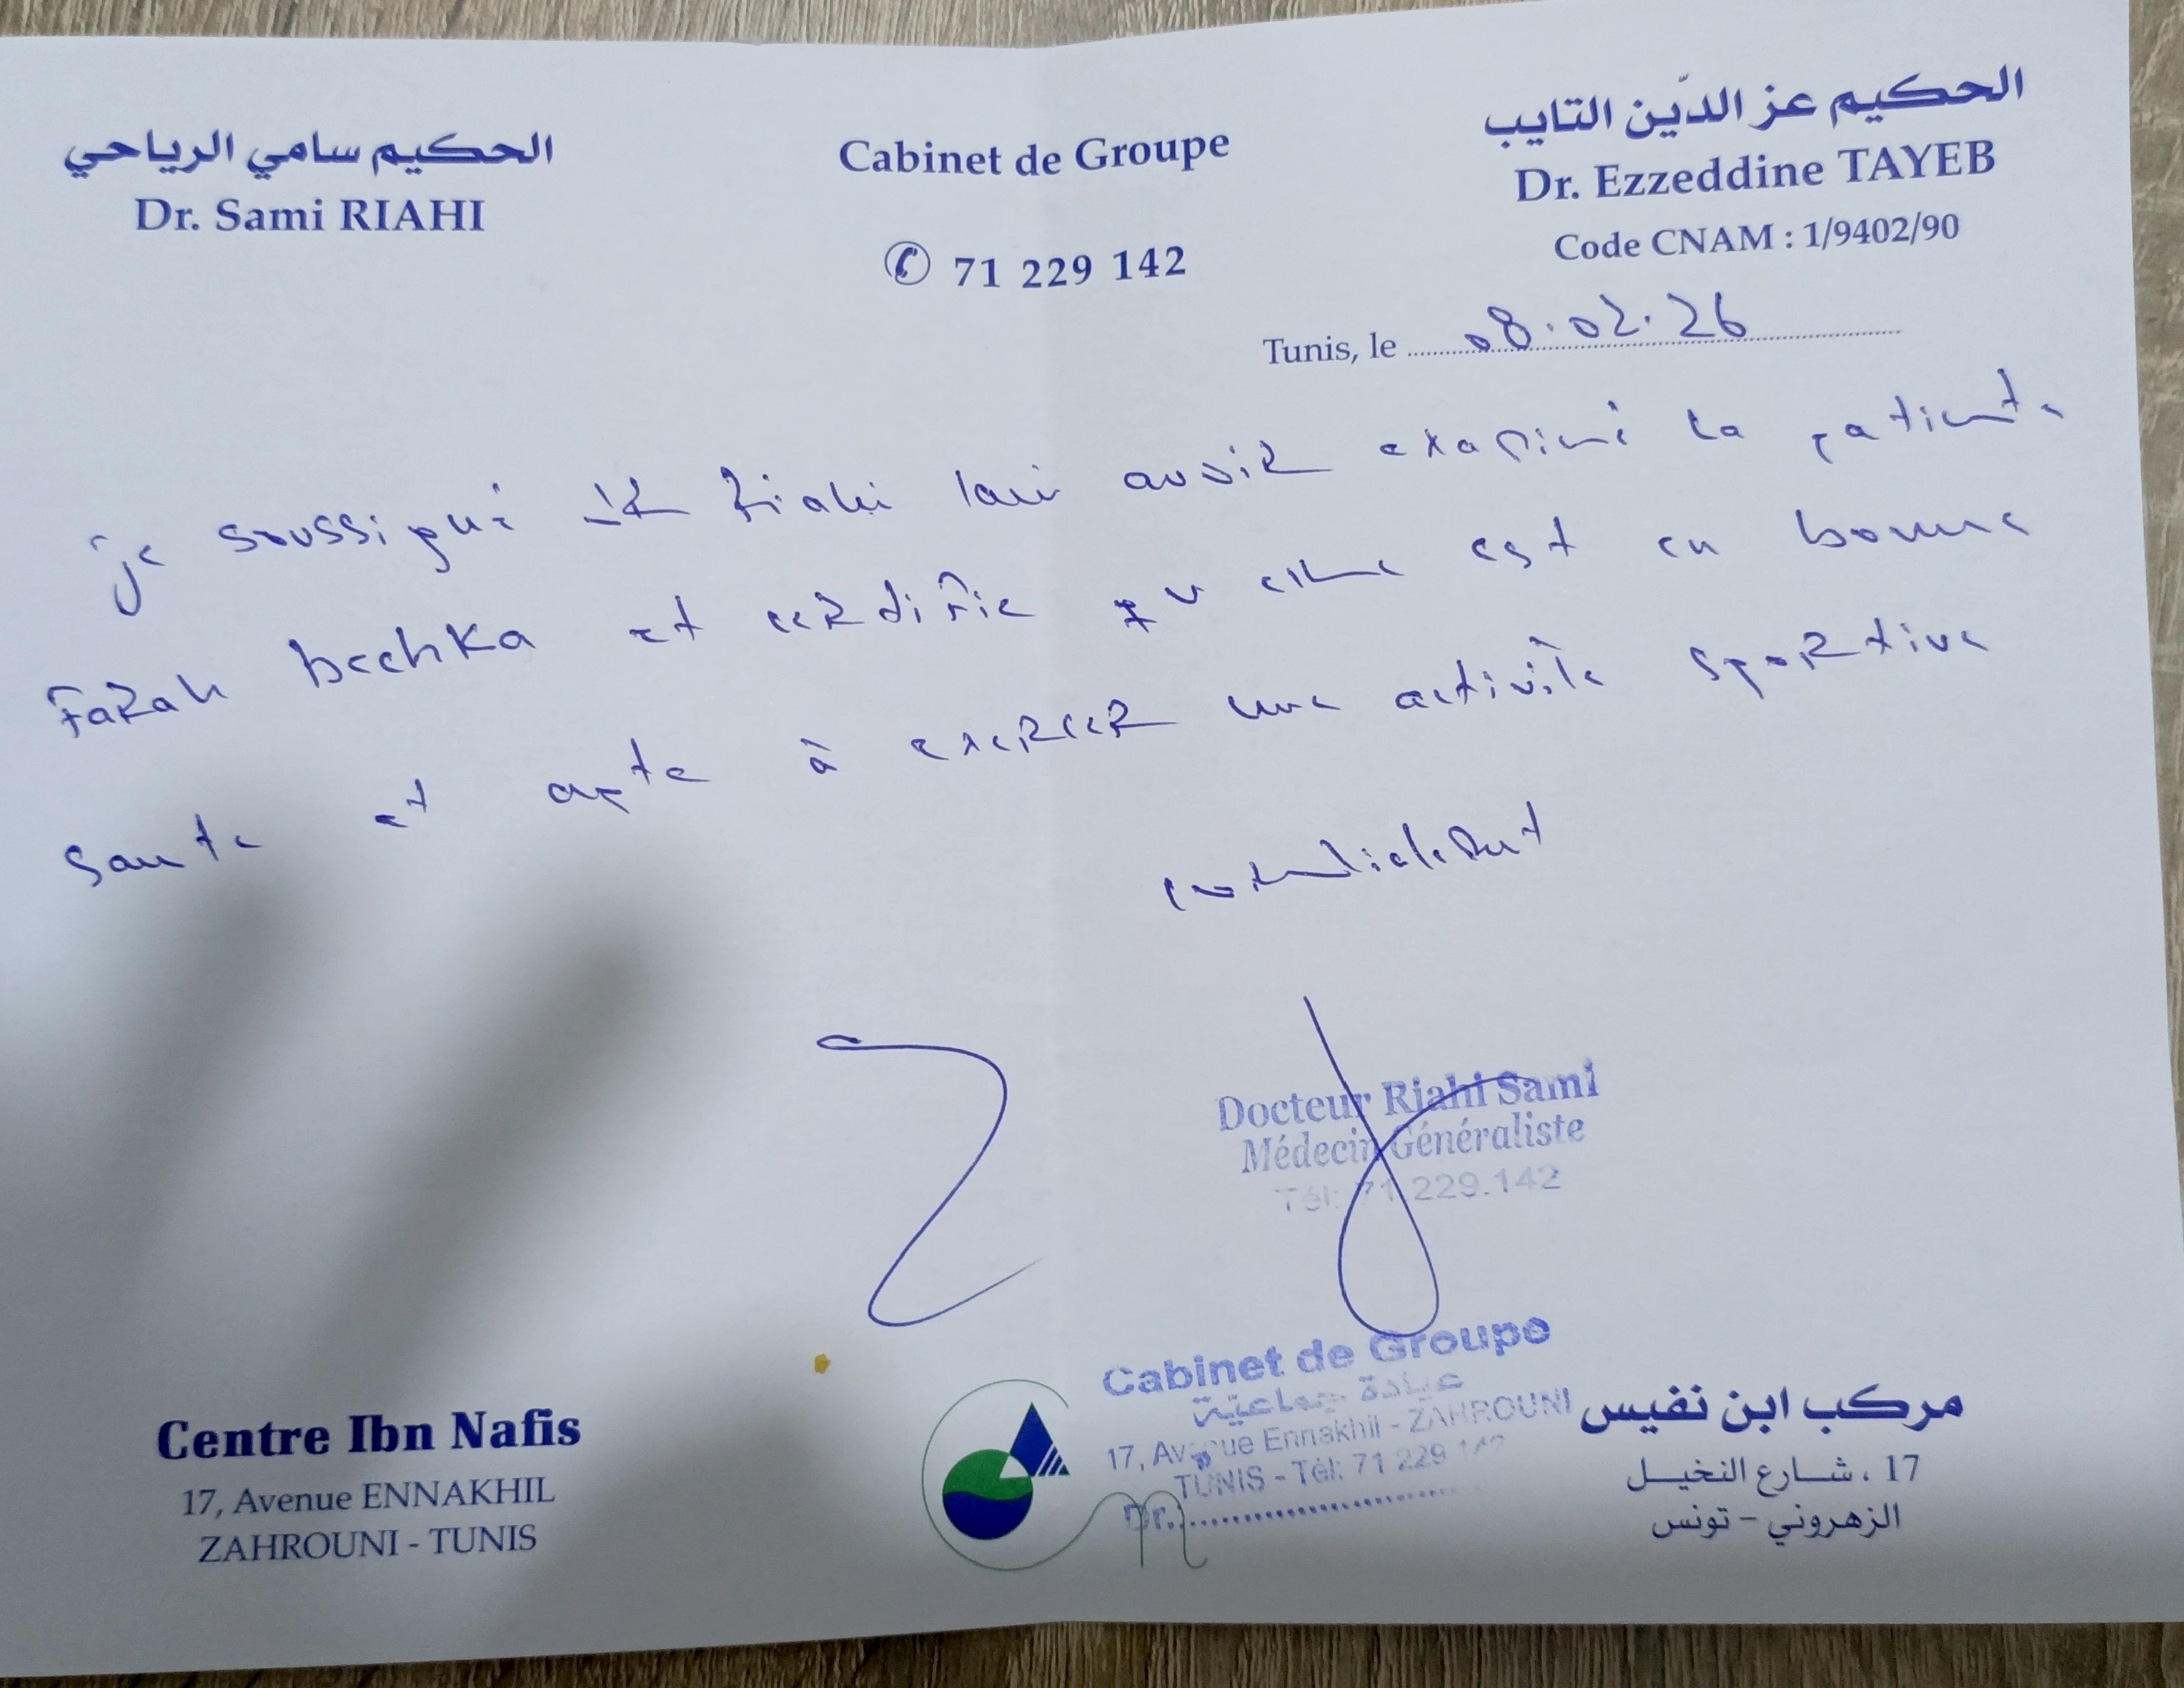 الحكيم سامي الرياحي
Dr. Sami RIAHI
Cabinet de Groupe
✆ 71 229 142
الحكيم عز الدّين التايب
Dr. Ezzeddine TAYEB
Code CNAM : 1/9402/90
Tunis, le 08.02.26
je soussigné Dr Riahi avoir examiné la patiente
Farah bechka et certifie qu elle est en bonne
Sante et apte à exercer une activité sportive
Docteur Riahi Sami
Médecin Généraliste
Tél: 71 229.142
Cabinet de Groupe
عيادة جماعيّة
17, Avenue Ennakhil - ZAHROUNI
TUNIS - Tél: 71 229 142
Dr.
Centre Ibn Nafis
17, Avenue ENNAKHIL
ZAHROUNI - TUNIS
مركب ابن نفيس
17 ، شــارع النخيــل
الزهروني – تونس